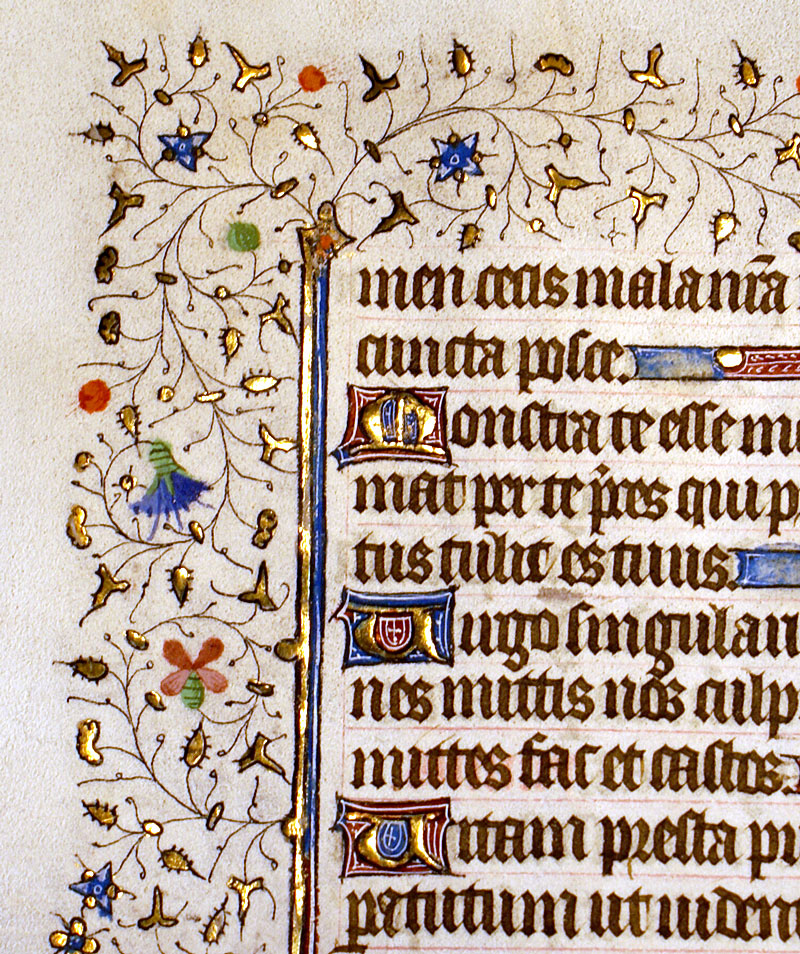 men cecis mala nr̄a
cuncta posce.
Monstra te esse m
mat per te p̄ces qui p
tus tulit es tuus.
Uirgo singulari
nes mittis nos culp
mittes fac et castos.
Uitam presta pu
patutum ut uident